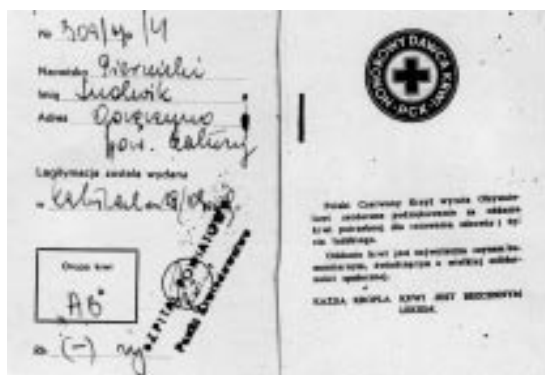 No 309/
Nazwisko
Imię Ludwik
Adres
pow. Kartuzy
Legitymacja została wydana
w
Grupa krwi
"AB"
Rh (-)
SZPITAL POWIATOWY
HONOROWY DAWCA KRWI · PCK ·
Polski Czerwony Krzyż wyraża Obywate-
lowi serdeczne podziękowanie za oddanie
krwi potrzebnej dla ratowania zdrowia i ży-
cia ludzkiego.
Oddanie krwi jest najwyższym czynem hu-
manitarnym, świadczącym o wielkiej solidar-
ności społecznej.
KAŻDA KROPLA KRWI JEST BEZCENNYM
LEKIEM.